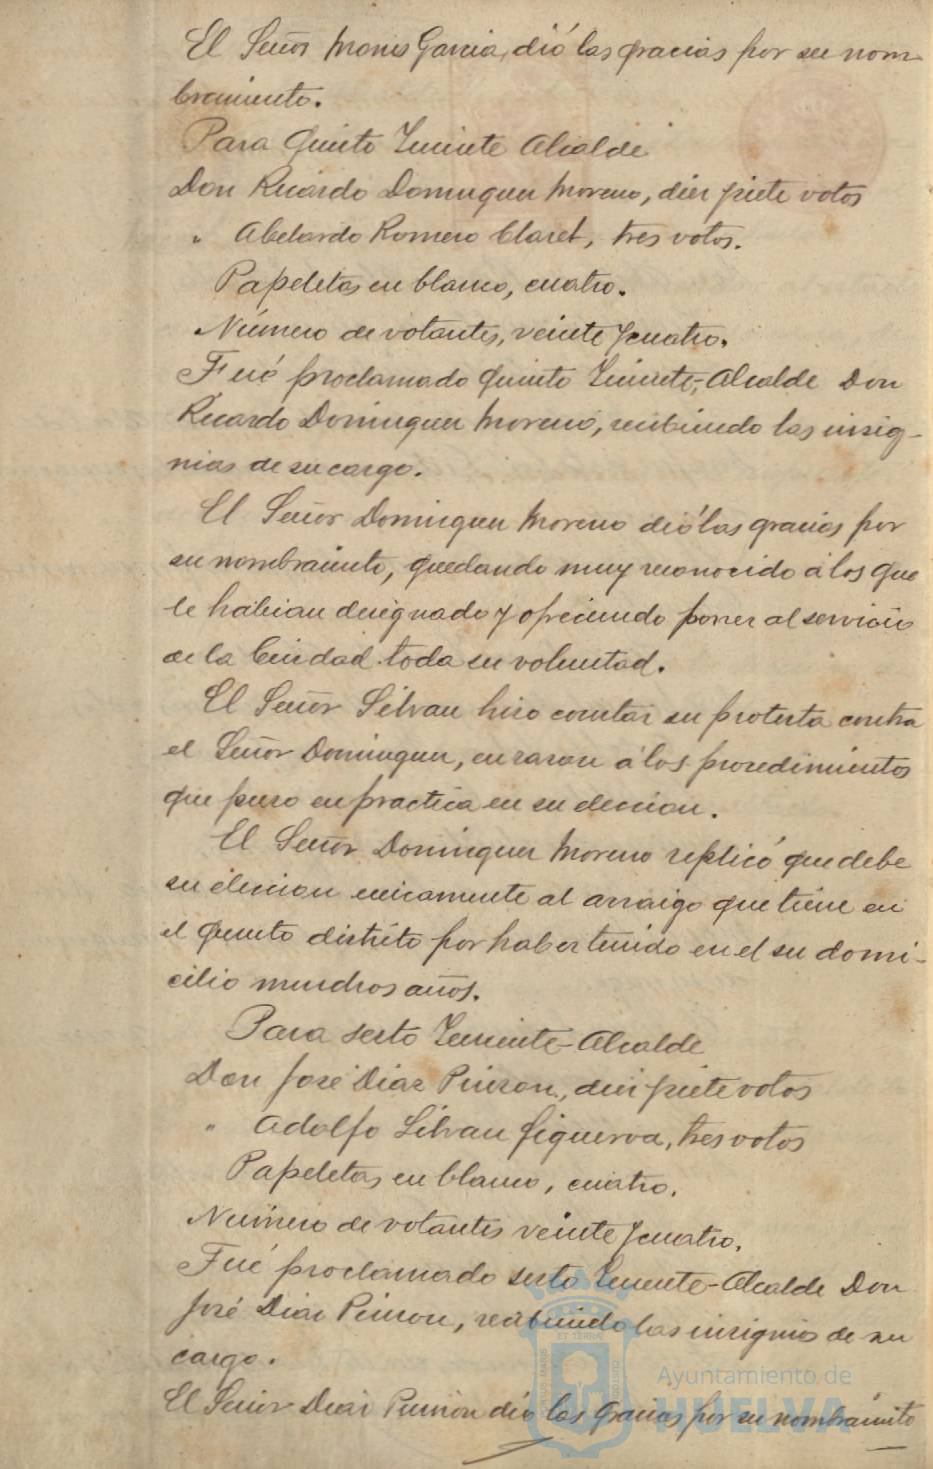 El Señor Monis Garcia, dió las gracias por su nom-
bramiento.
Para Quinto Teniente Alcalde
Don Ricardo Dominguez Moreno, diez siete votos
" Abelardo Romero Claret, tres votos.
Papeletas en blanco, cuatro.
Número de votantes, veinte y cuatro.
Fué proclamado Quinto Teniente-Alcalde Don
Ricardo Dominguez Moreno, recibiendo las insig-
nias de su cargo.
El Señor Dominguez Moreno dió las gracias por
su nombramiento, quedando muy reconocido á los que
le habian designado y ofreciendo poner al servicio
de la Ciudad toda su voluntad.
El Señor Silvan hizo constar su protesta contra
el Señor Dominguez, en razon á los procedimientos
que puso en practica en su eleccion.
El Señor Dominguez Moreno replicó que debe
su eleccion unicamente al arraigo que tiene en
el quinto distrito por haber tenido en el su domi-
cilio muchos años.
Para sesto Teniente-Alcalde
Don José Diaz Pinzon, diez siete votos
" Adolfo Silvan Figueroa, tres votos
Papeletas en blanco, cuatro.
Número de votantes veinte y cuatro.
Fué proclamado sesto Teniente-Alcalde Don
José Diaz Pinzon, recibiendo las insignias de su
cargo.
El Señor Diaz Pinzon dió las gracias por su nombramiento
ET TERRÆ
Ayuntamiento de
HUELVA